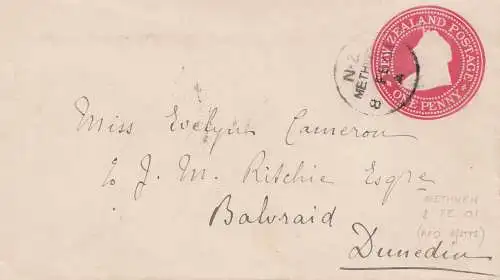 NEW ZEALAND POSTAGE
ONE PENNY
N·Z
METHVEN
8 FE 0
Miss Evelyn Cameron
c/o J. M. Ritchie Esqre
Balvraid
Dunedin
METHVEN
8 FE 01